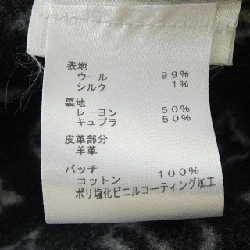 表地
ウール 99%
シルク 1%
裏地
レーヨン 50%
キュプラ 50%
皮革部分
羊革
パッチ
コットン 100%
ポリ塩化ビニルコーティング加工